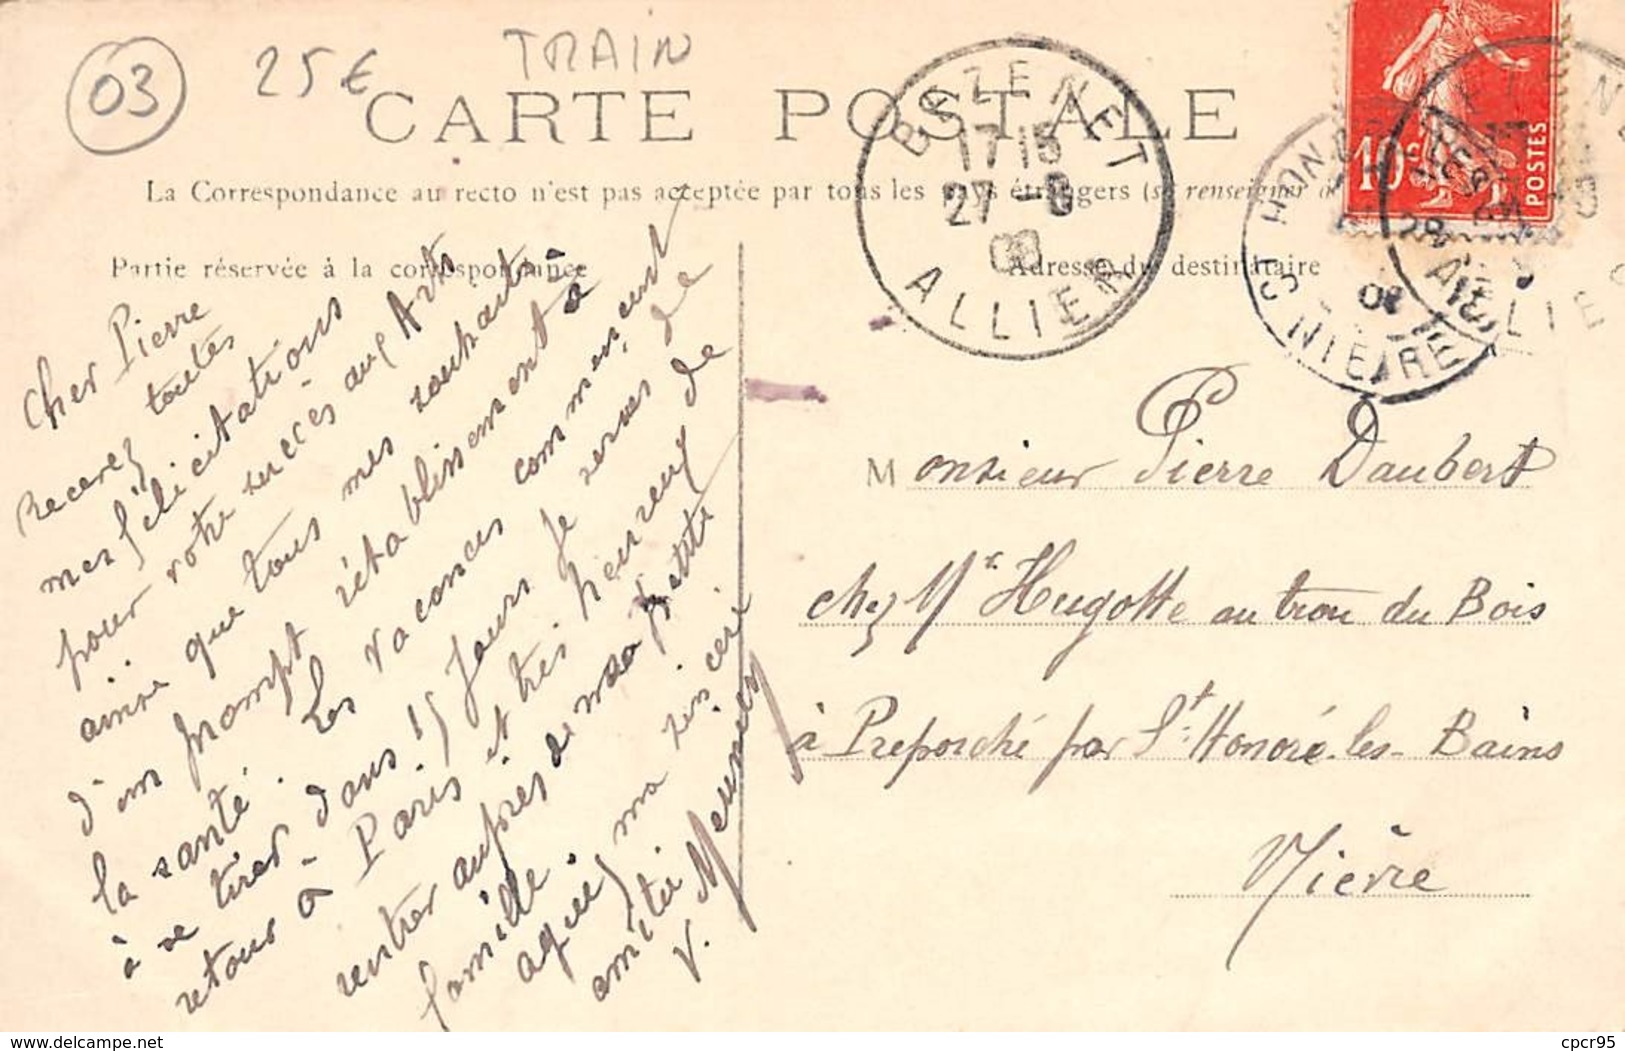 03
25€
TRAIN
CARTE POSTALE
La Correspondance au recto n'est pas acceptée par tous les pays étrangers (se renseigner à
Partie réservée à la correspondance
Adresse du destinataire
BEZENET
17 15
27 -8
08
ALLIER
ST HONORÉ
NIÈVRE
ALLIE
10c
POSTES
Cher Pierre
Recevez toutes
mes félicitations
pour votre succès aux Arts
ainsi que tous mes souhaits
d'un prompt rétablissement à
la santé. Les vacances commencent
à se tirer dans 15 jours je serais de
retour à Paris et très heureux de
rentrer auprès de ma petite
famille.
agréez ma sincère
amitié
V. Meunier
Monsieur Pierre Daubert
chez Mr Hugotte au trou du Bois
à Préporché par St Honoré-les-Bains
Nièvre
cpcr95